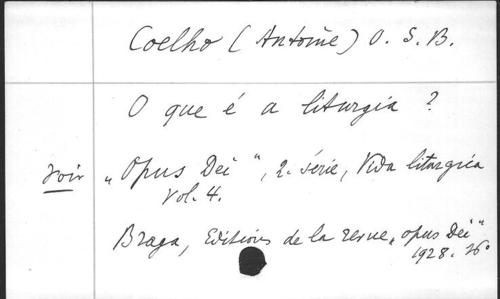 Coelho (Antoine) O. S. B.
O que é a liturgia ?
Voir „Opus Dei“, 2. série, Vida litúrgica
Vol. 4.
Braga, Editions de la revue „Opus Dei“
1928. 16°